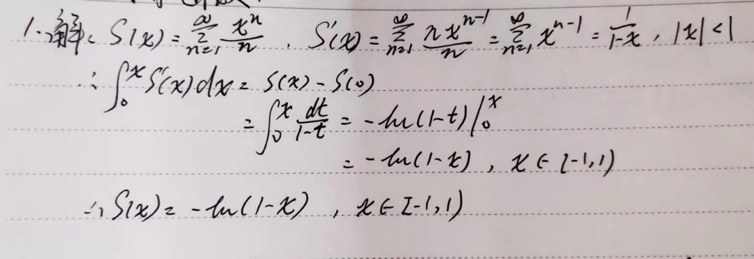 1. 解: S(x) = ∑_{n=1}^{∞} x^n/n . S'(x) = ∑_{n=1}^{∞} nx^{n-1}/n = ∑_{n=1}^{∞} x^{n-1} = 1/(1-x) , |x|<1
∴ ∫_0^x S'(x)dx = S(x) - S(0)
= ∫_0^x dt/(1-t) = -ln(1-t)|_0^x
= -ln(1-x) , x∈[-1,1)
∴ S(x) = -ln(1-x) , x∈[-1,1)